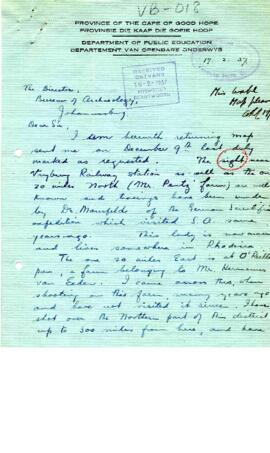 VB-018
PROVINCE OF THE CAPE OF GOOD HOPE
PROVINSIE DIE KAAP DIE GOEIE HOOP
DEPARTMENT OF PUBLIC EDUCATION
DEPARTEMENT VAN OPENBARE ONDERWYS
17. 2. 37
RECEIVED
ONTVANG
The Director,
Bureau of Archaeology,
Johannesburg
Dear Sir,
I herewith returning map
sent me on December 9th last duly
marked as requested. The eight
Vryburg Railway station as well as the one
20 miles North (Mr. farm) are well
known and tracings have been
by Dr. of the German Scientific
expedition which visited S.A. some
years ago. This lady is now married
and lives somewhere in Rhodesia
The one 20 miles East is at O'Reilly's
pan, a farm belonging to Mr. Hermanus
van Eeden. I came across this, when
shooting on this farm many years ago
and have not visited it since. I have
shot over the Northern part of this district
up to 300 miles from here, and have